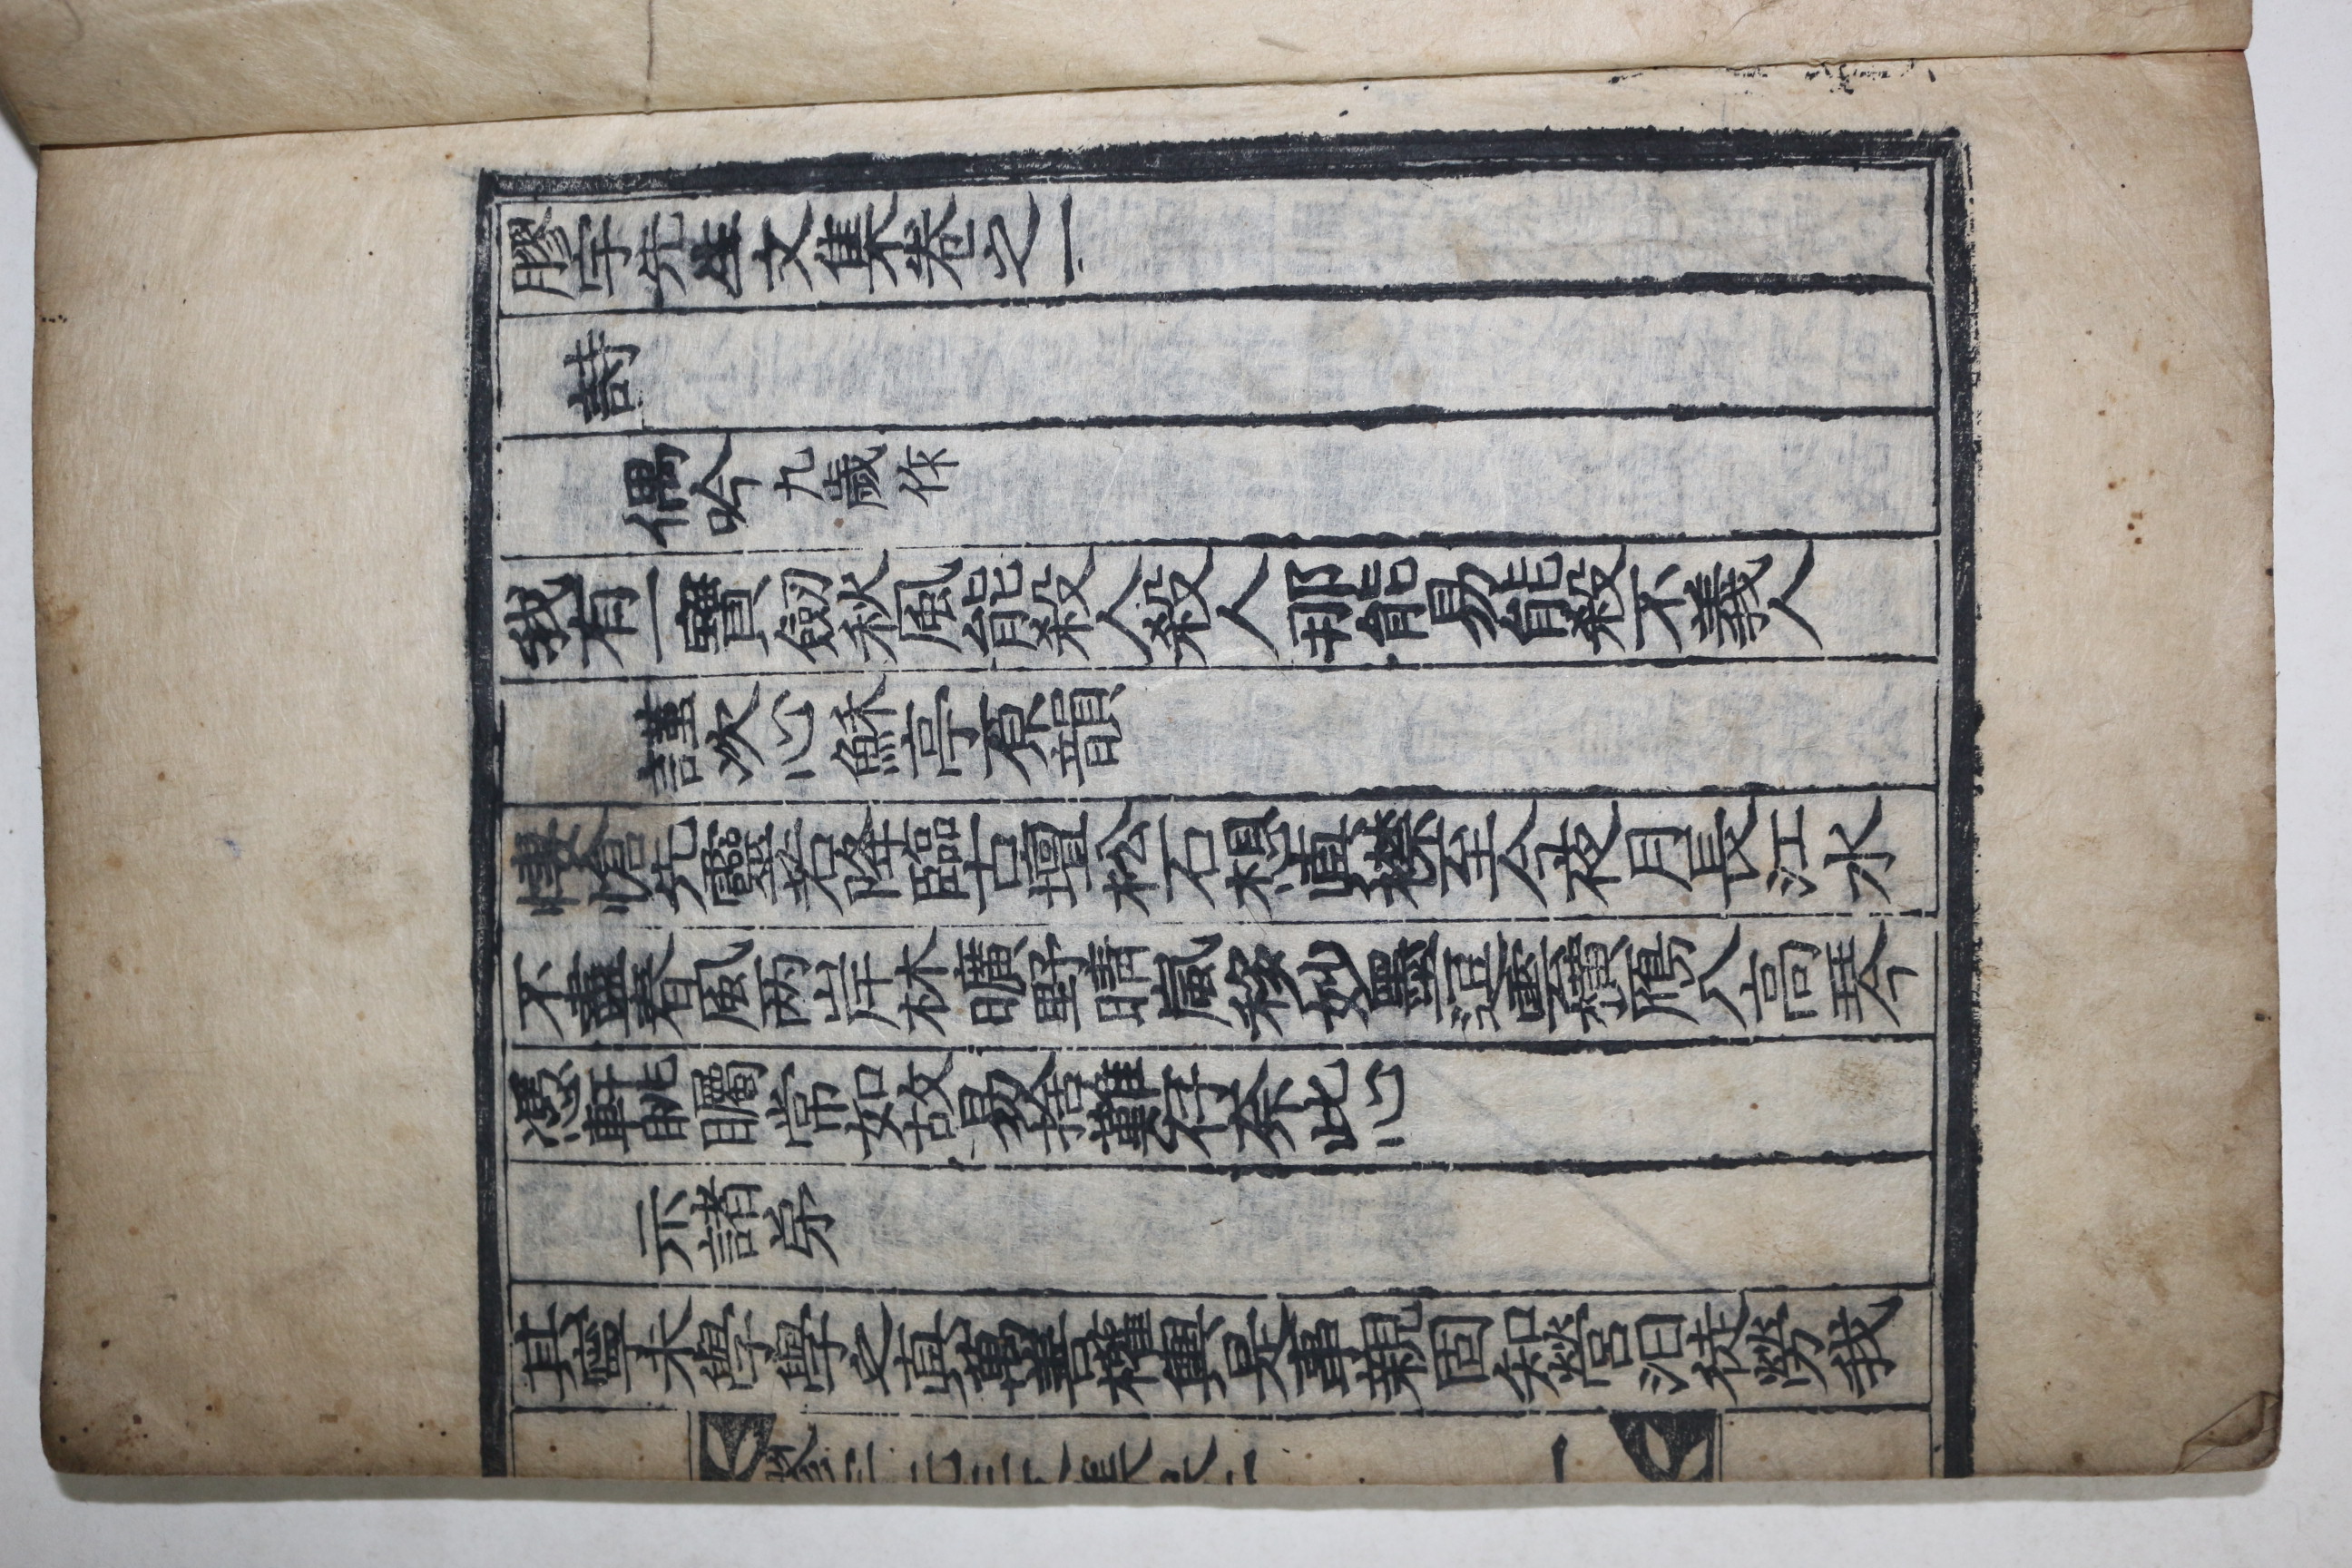 膠宇先生文集卷之一
詩
偶吟九歲作
我有一寶劒秋風能殺人殺人那能易能殺不義人
謹次心穌亭原韻
悽愴先靈若降臨古壇松石想眞襟至今夜月長江水
不盡春風两岸林曠野晴嵐移妙墨逗雲橫鴈入高琴
憑軒眺矚常如故易捨難存奈此心
示諸弟
其寧未學學之眞萬善權輿是事親固知營汩徒勞我
一